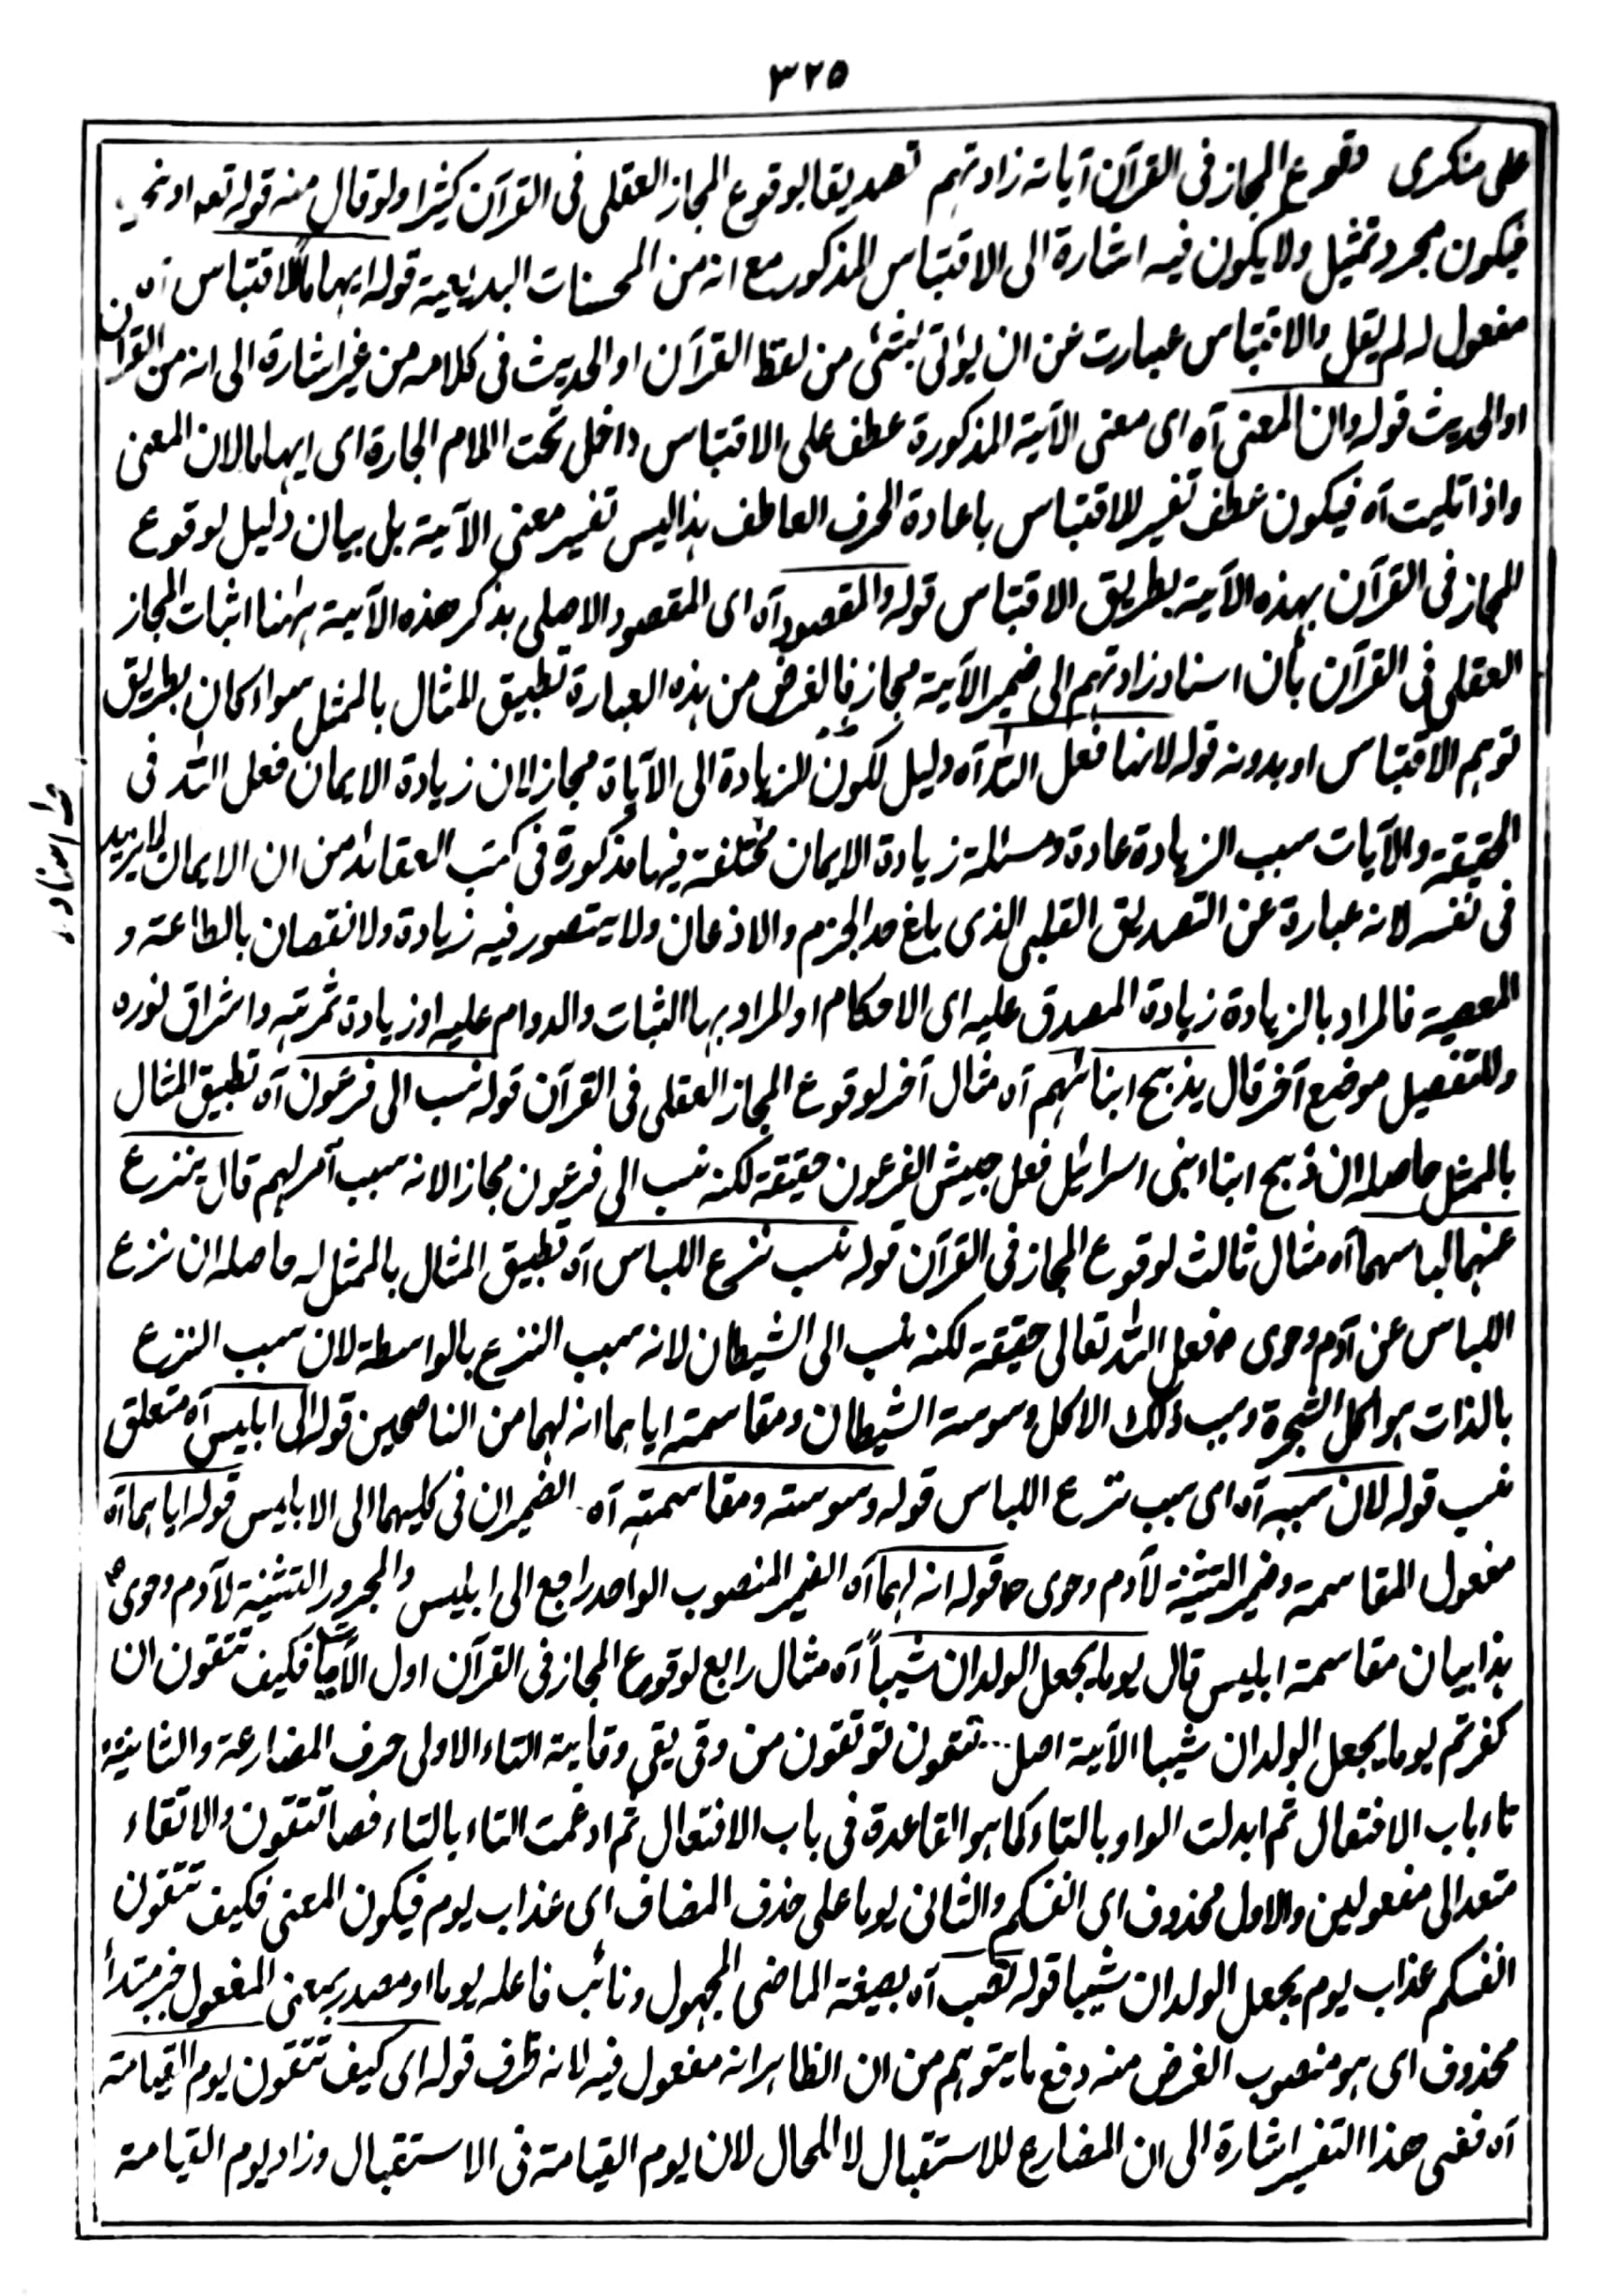 ٣٢٥
على منكرى وقوع المجاز فى القرآن آياته زادتهم تصديقا بوقوع المجاز العقلى فى القرآن كثيرا ولو قال منه قوله تعه او نحو
فيكون مجرد تمثيل ولا يكون فيه اشارة الى الاقتباس المذكور مع انه من المحسنات البديعية قوله ايهاما للاقتباس آه
مفعول له لم يقل والاقتباس عبارت عن ان يؤاتى بشئ من لفظ القرآن او الحديث فى كلامه من غير اشارة الى انه من القرآن
او الحديث قوله وان المعنى آه اى معنى الآية المذكورة عطف على الاقتباس داخل تحت اللام الجارة اى ايهاما لان المعنى
واذا تليت آه فيكون عطف تفسير للاقتباس باعادة الحرف العاطف هذا ليس تفسير معنى الآية بل بيان دليل لوقوع
المجاز فى القرآن بهذه الآية بطريق الاقتباس قوله والمقصود آه اى المقصود الاصلى بذكر هذه الآية ههنا اثبات المجاز
العقلى فى القرآن بأن اسناد زادتهم الى ضمير الآية مجاز فالغرض من هذه العبارة تطبيق المثال بالممثل سواء كان بطريق
توهم الاقتباس او بدونه قوله لانها فعل الله آه دليل لكون الزيادة الى الآياة مجازا لان زيادة الايمان فعل الله فى
الحقيقة والآيات سبب الزيادة عادة ومسئلة زيادة الايمان مختلفة فيها مذكورة فى كتب العقائد من ان الايمان لا يزيد
فى نفسه لانه عبارة عن التصديق القلبى الذى بلغ حد الجزم والاذعان ولا يتصور فيه زيادة ولا نقصان بالطاعة و
المعصية فالمراد بالزيادة زيادة المصدق عليه اى الاحكام او المراد بها الثبات والدوام عليه او زيادة ثمرته واشراق نوره
وللتفصيل موضع آخر قال يذبح ابنائهم آه مثال آخر لوقوع المجاز العقلى فى القرآن قوله نسب الى فرعون آه تطبيق المثال
بالممثل حاصله ان ذبح ابناء بنى اسرائيل فعل جيش الفرعون حقيقة لكنه نسب الى فرعون مجازا لانه سبب آمر لهم قال ينزع
عنهما لباسهما آه مثال ثالث لوقوع المجاز فى القرآن قوله نسب نزع اللباس آه تطبيق المثال بالممثل له حاصله ان نزع
اللباس عن آدم وحوى فعل الله تعالى حقيقة لكنه نسب الى الشيطان لانه سبب النزع بالواسطة لان سبب النزع
بالذات هو اكل الشجرة وسبب ذلك الاكل وسوسة الشيطان ومقاسمته اياهما انه لهما من الناصحين قوله الى ابليس آه متعلق
نسب قوله لان سببه آه اى سبب نزع اللباس قوله وسوسته ومقاسمته آه الضميران فى كليهما الى الابليس قوله اياهما آه
مفعول المقاسمة وضمير التثنية لآدم وحوى قوله انه لهما آه الضمير المنصوب الواحد راجع الى ابليس والمجرور التثنية لآدم وحوى
هذا بيان مقاسمة ابليس قال يوما يجعل الولدان شيبا آه مثال رابع لوقوع المجاز فى القرآن اول الآية فكيف تتقون ان
كفرتم يوما يجعل الولدان شيبا الآية اصل تتقون توتقون من وقى يقى وقاية التاء الاولى حرف المضارعة والثانية
تاء باب الافتعال ثم ابدلت الواو بالتاء كما هو القاعدة فى باب الافتعال ثم ادغمت التاء بالتاء فصا تتقون والاتقاء
متعد الى مفعولين والاول محذوف اى انفسكم والثانى يوما على حذف المضاف اى عذاب يوم فيكون المعنى فكيف تتقون
انفسكم عذاب يوم يجعل الولدان شيبا قوله نصب آه بصيغة الماضى المجهول ونائب فاعله يوما او مصدر بمعنى المفعول خبر مبتدأ
محذوف اى هو منصوب الغرض منه دفع ما يتوهم من ان الظاهر انه مفعول فيه لانه ظرف قوله اى كيف تتقون يوم القيامة
آه ففى هذا التفسير اشارة الى ان المضارع للاستقبال لا للحال لان يوم القيامة فى الاستقبال وزاد يوم القيامة
اسناد